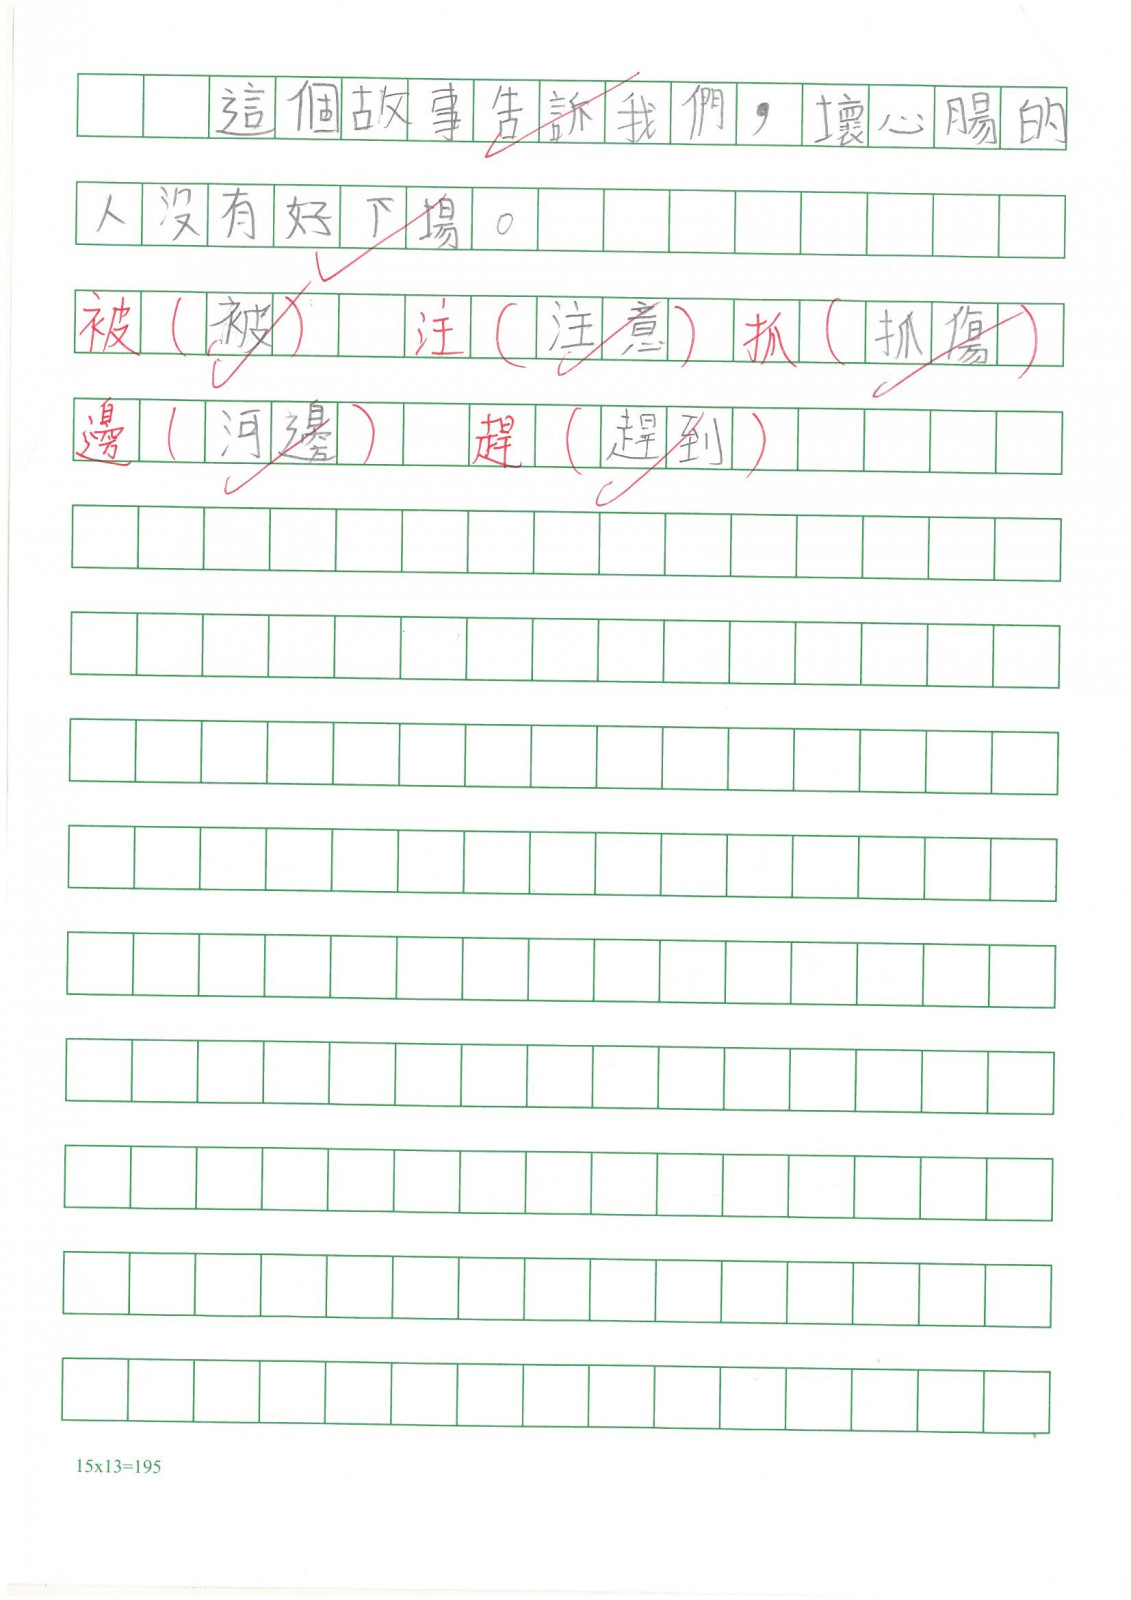 這個故事告訴我們，壞心腸的
人沒有好下場。
被（被） 注（注意）抓（抓傷）
邊（河邊） 趕（趕到）
15x13=195